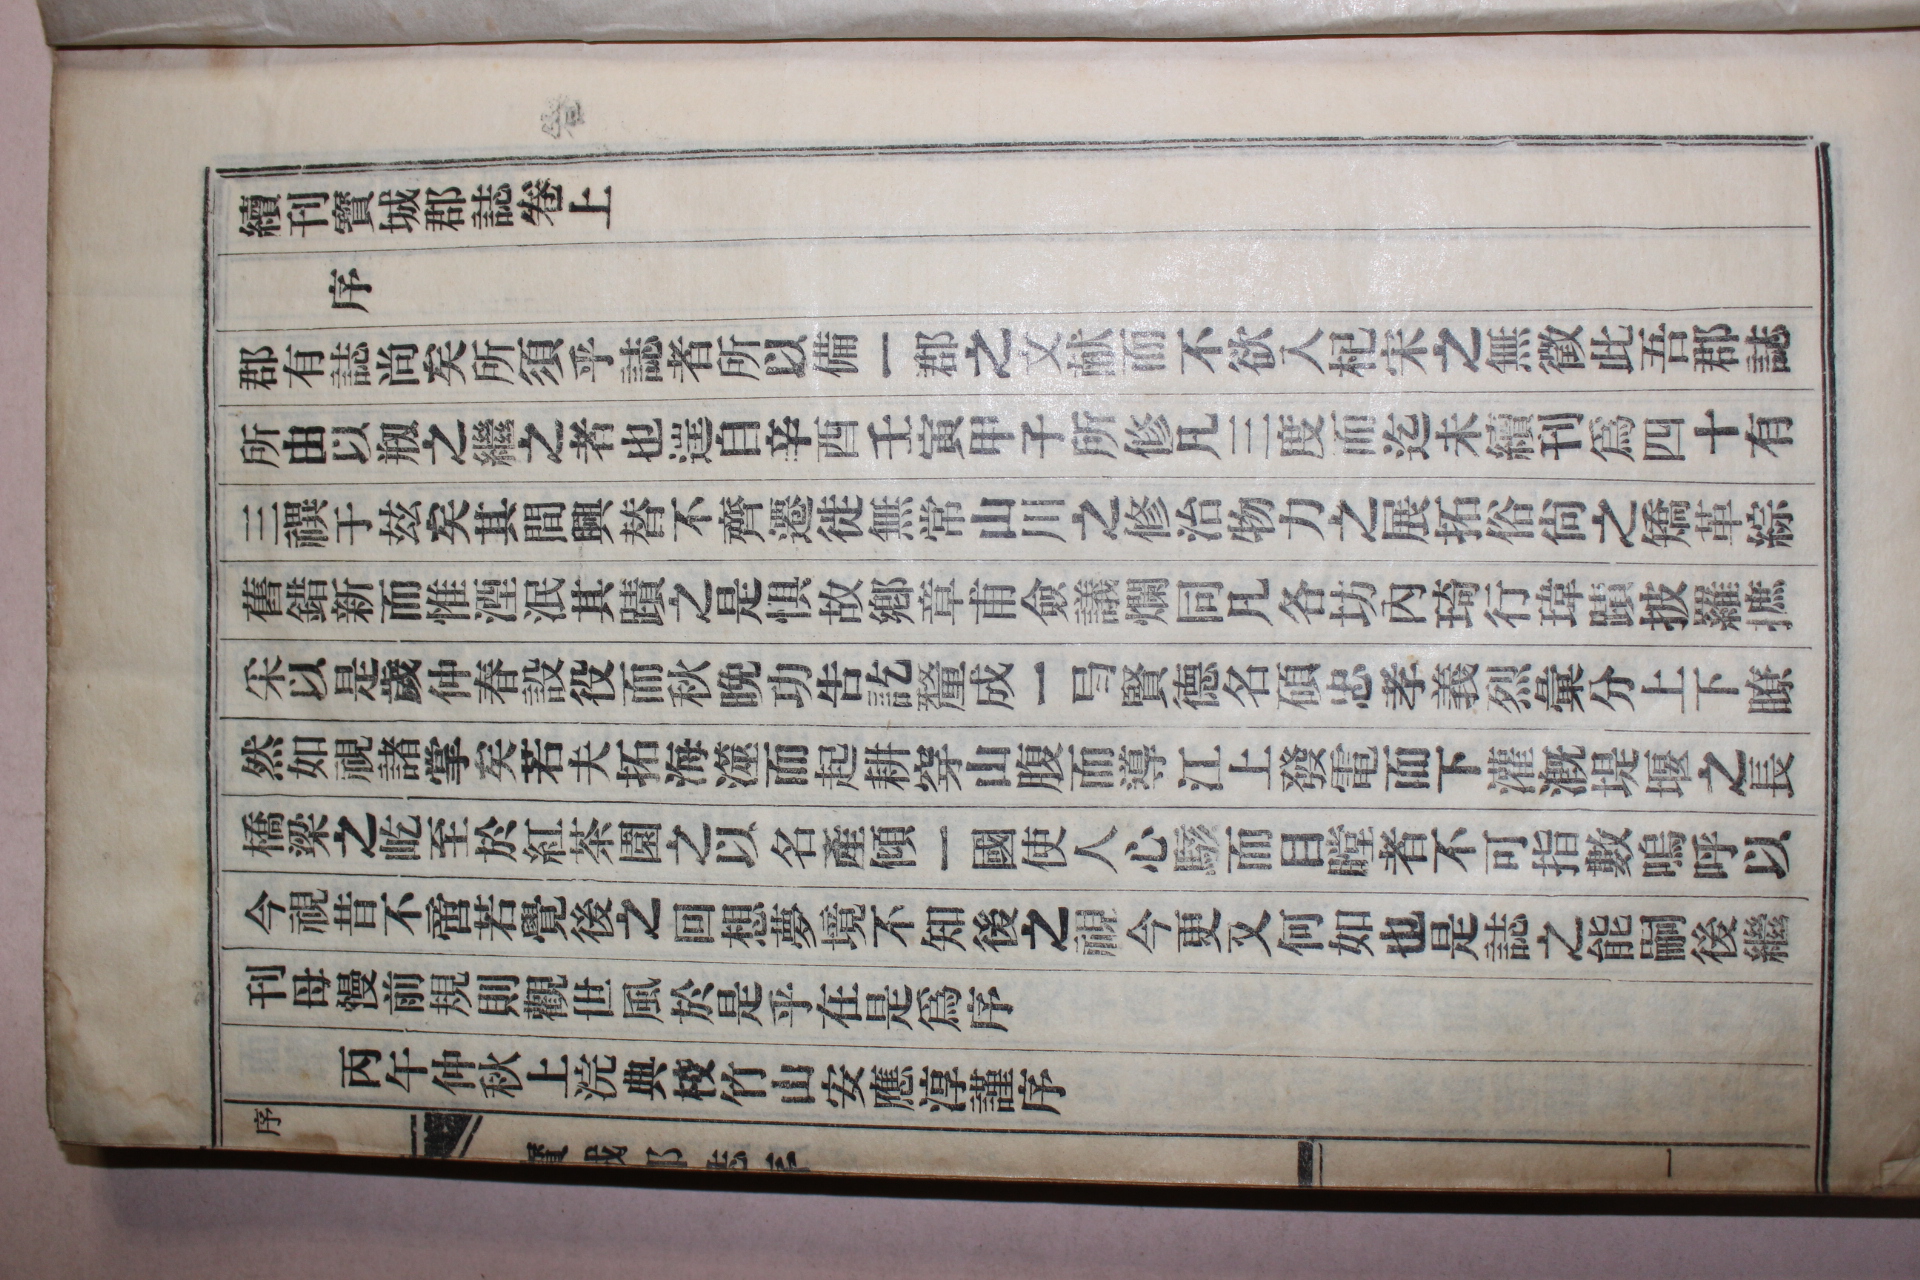 續刊寶城郡誌卷上
序
郡有誌尚矣所須乎誌者所以備一郡之文献而不欲人杞宋之無徵此吾郡誌
所由以剏之繼之者也遳自辛酉壬寅甲子所修凡三度而迄未續刊爲四十有
三禩于玆矣其間興替不齊遷徙無常山川之修治物力之展拓俗尙之矯革綜
舊錯新而惟湮泯其蹟之是惧故鄕章甫僉議爛同凡各坊內琦行瑋蹟披羅摭
采以是歲仲春設役而秋晩功告訖釐成一弓賢德名碩忠孝義烈彙分上下瞭
然如視諸掌矣若夫拓海澨而起耕穿山腹而導江上發電而下灌漑堤堰之長
橋梁之屹至於紅茶園之以名產傾一國使人心駭而目瞠者不可指數嗚呼以
今視昔不啻若覺後之回想夢境不知後之視今更又何如也是誌之能嗣後繼
刊毋慢前規則觀世風於是乎在是爲序
丙午仲秋上浣典校竹山安應淳謹序
序
寶城郡誌序
一